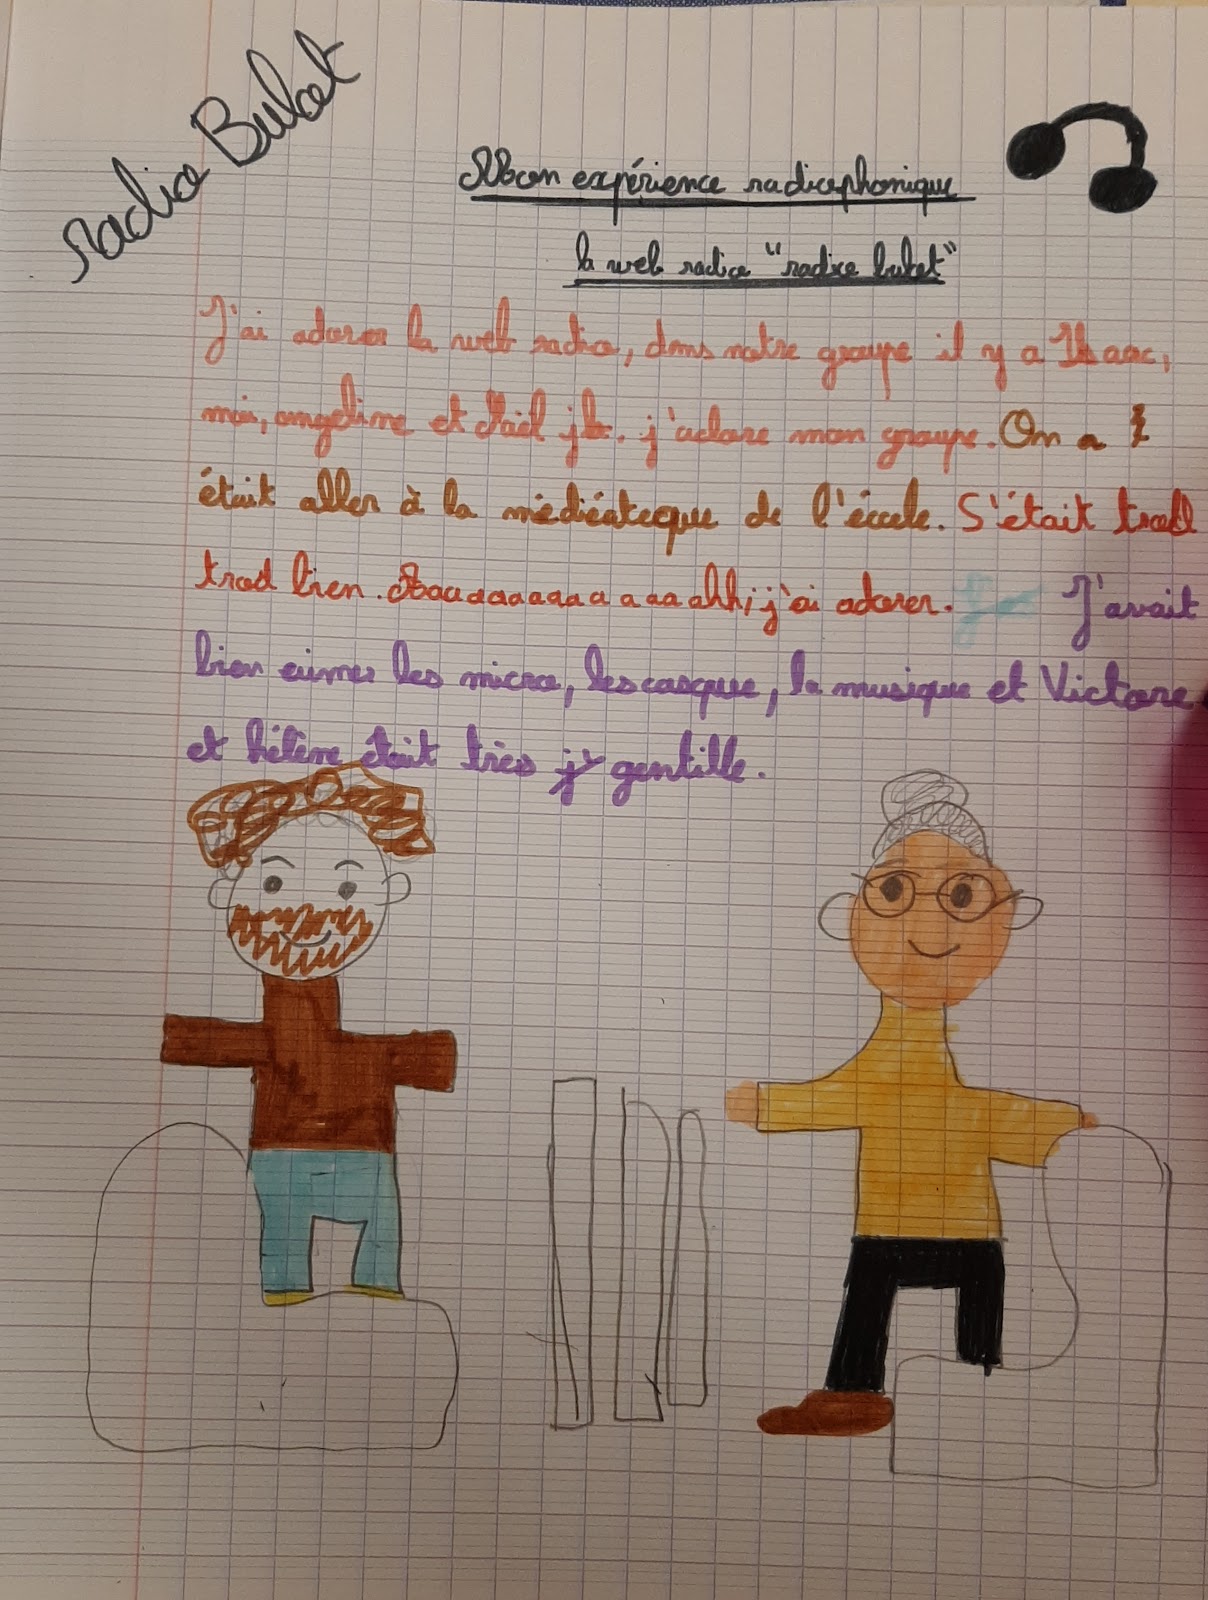 Radio Buket
Mon expérience radiophonique
la web radio "radio buket"
J'ai adorer la web radio, dans notre groupe il y a Isaac,
moi, angeline et j'adore mon groupe. On a
était aller à la médiéateque de l'école. S'était trod
trod bien. Aaaaaaaaaa a aa ahh, j'ai adorer. J'avait
bien aimer les micro, les casque, la musique et Victore
et hélène était très gentille.